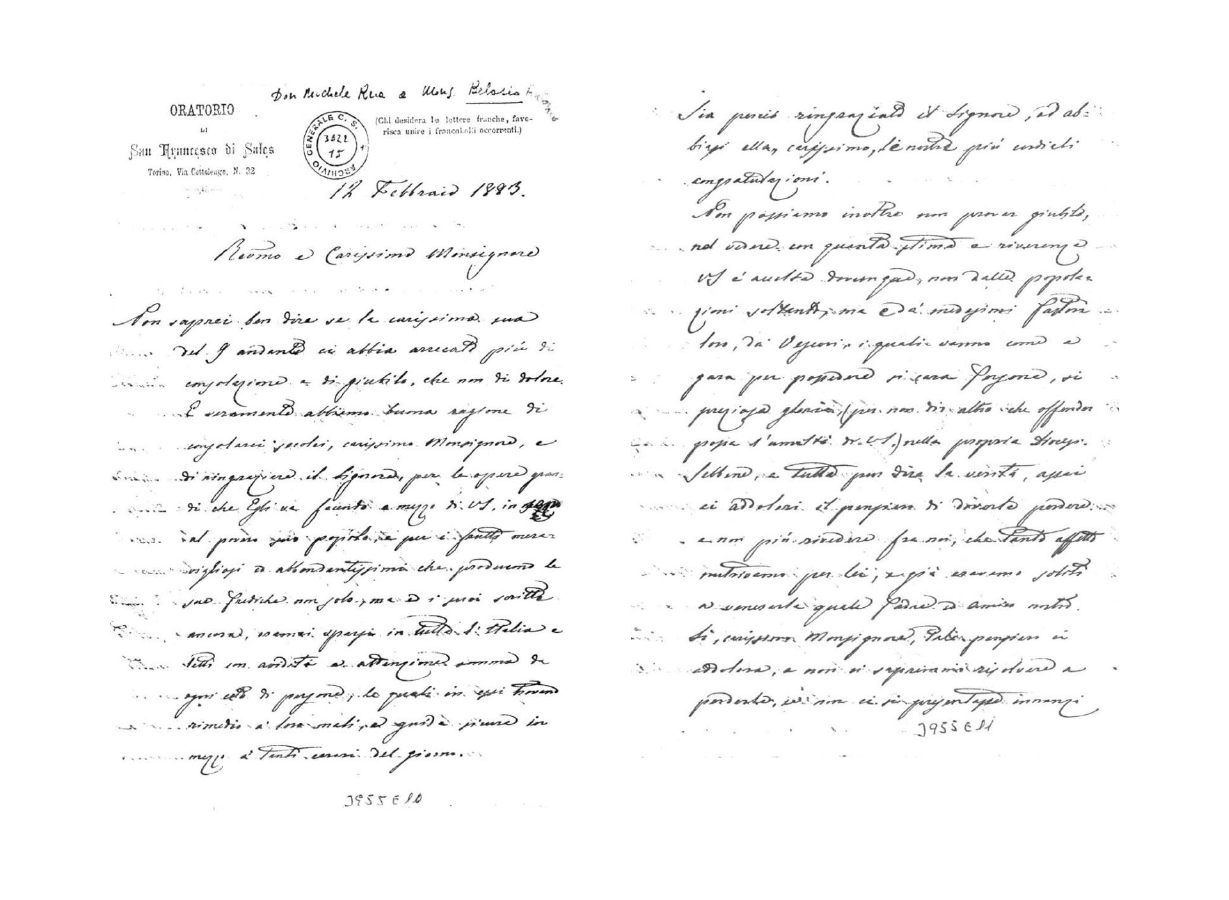 Don Michele Rua a Mons. Belasio
ORATORIO
DI
San Francesco di Sales
Torino, Via Cottolengo, N. 32
(Chi desidera le lettere franche, favo-
risca unire i francobolli occorrenti.)
ARCHIVIO GENERALE C. S.
3822
15
12 Febbraio 1883.
Revmo e Carissimo Monsignore
Non saprei ben dire se la carissima sua
del 9 andante ci abbia arrecato più di
consolazione e di giubilo, che non di dolore.
E veramente abbiamo buona ragione di
consolarci secolei, carissimo Monsignore, e
di ringraziare il Signore, per le opere gran-
di che Egli va facendo a mezzo di VS. in
al povero suo popolo, e per i frutti mera-
vigliosi ed abbondantissimi che producono le
sue Prediche non solo, ma e i suoi scritti
ancora, oramai sparsi in tutta l'Italia e
letti con avidità ed attenzione somma da
ogni ceto di persone, le quali in essi trovano
rimedio a' loro mali, e guida sicura in
mezzo a' tanti errori del giorno.
J955E10
Sia perciò ringraziato il Signore, ed ab-
biasi ella, carissimo, le nostre più cordiali
congratulazioni.
Non possiamo inoltre non provar giubilo,
nel vedere con quanta stima e riverenza
VS è accolta dovunque, non dalle popola-
zioni soltanto, ma e da' medesimi Pastori
loro, da' Vescovi, i quali vanno come a
gara per possedere sì cara Persona, sì
preziosa gloria, (per non dir altro che offender
possa l'umiltà di VS.) nella propria Diocesi.
Sebbene, a tutta pur dire la verità, assai
ci addolori il pensiero di doverla perdere
e non più rivedere fra noi, che tanto affetto
nutrivamo per lei, e già eravamo soliti
a venerarla quale Padre ed amico nostro.
Sì, carissimo Monsignore, tale pensiero ci
addolora, e non ci sapremmo risolvere a
perderla, se non ci si presentasse innanzi
J955E11